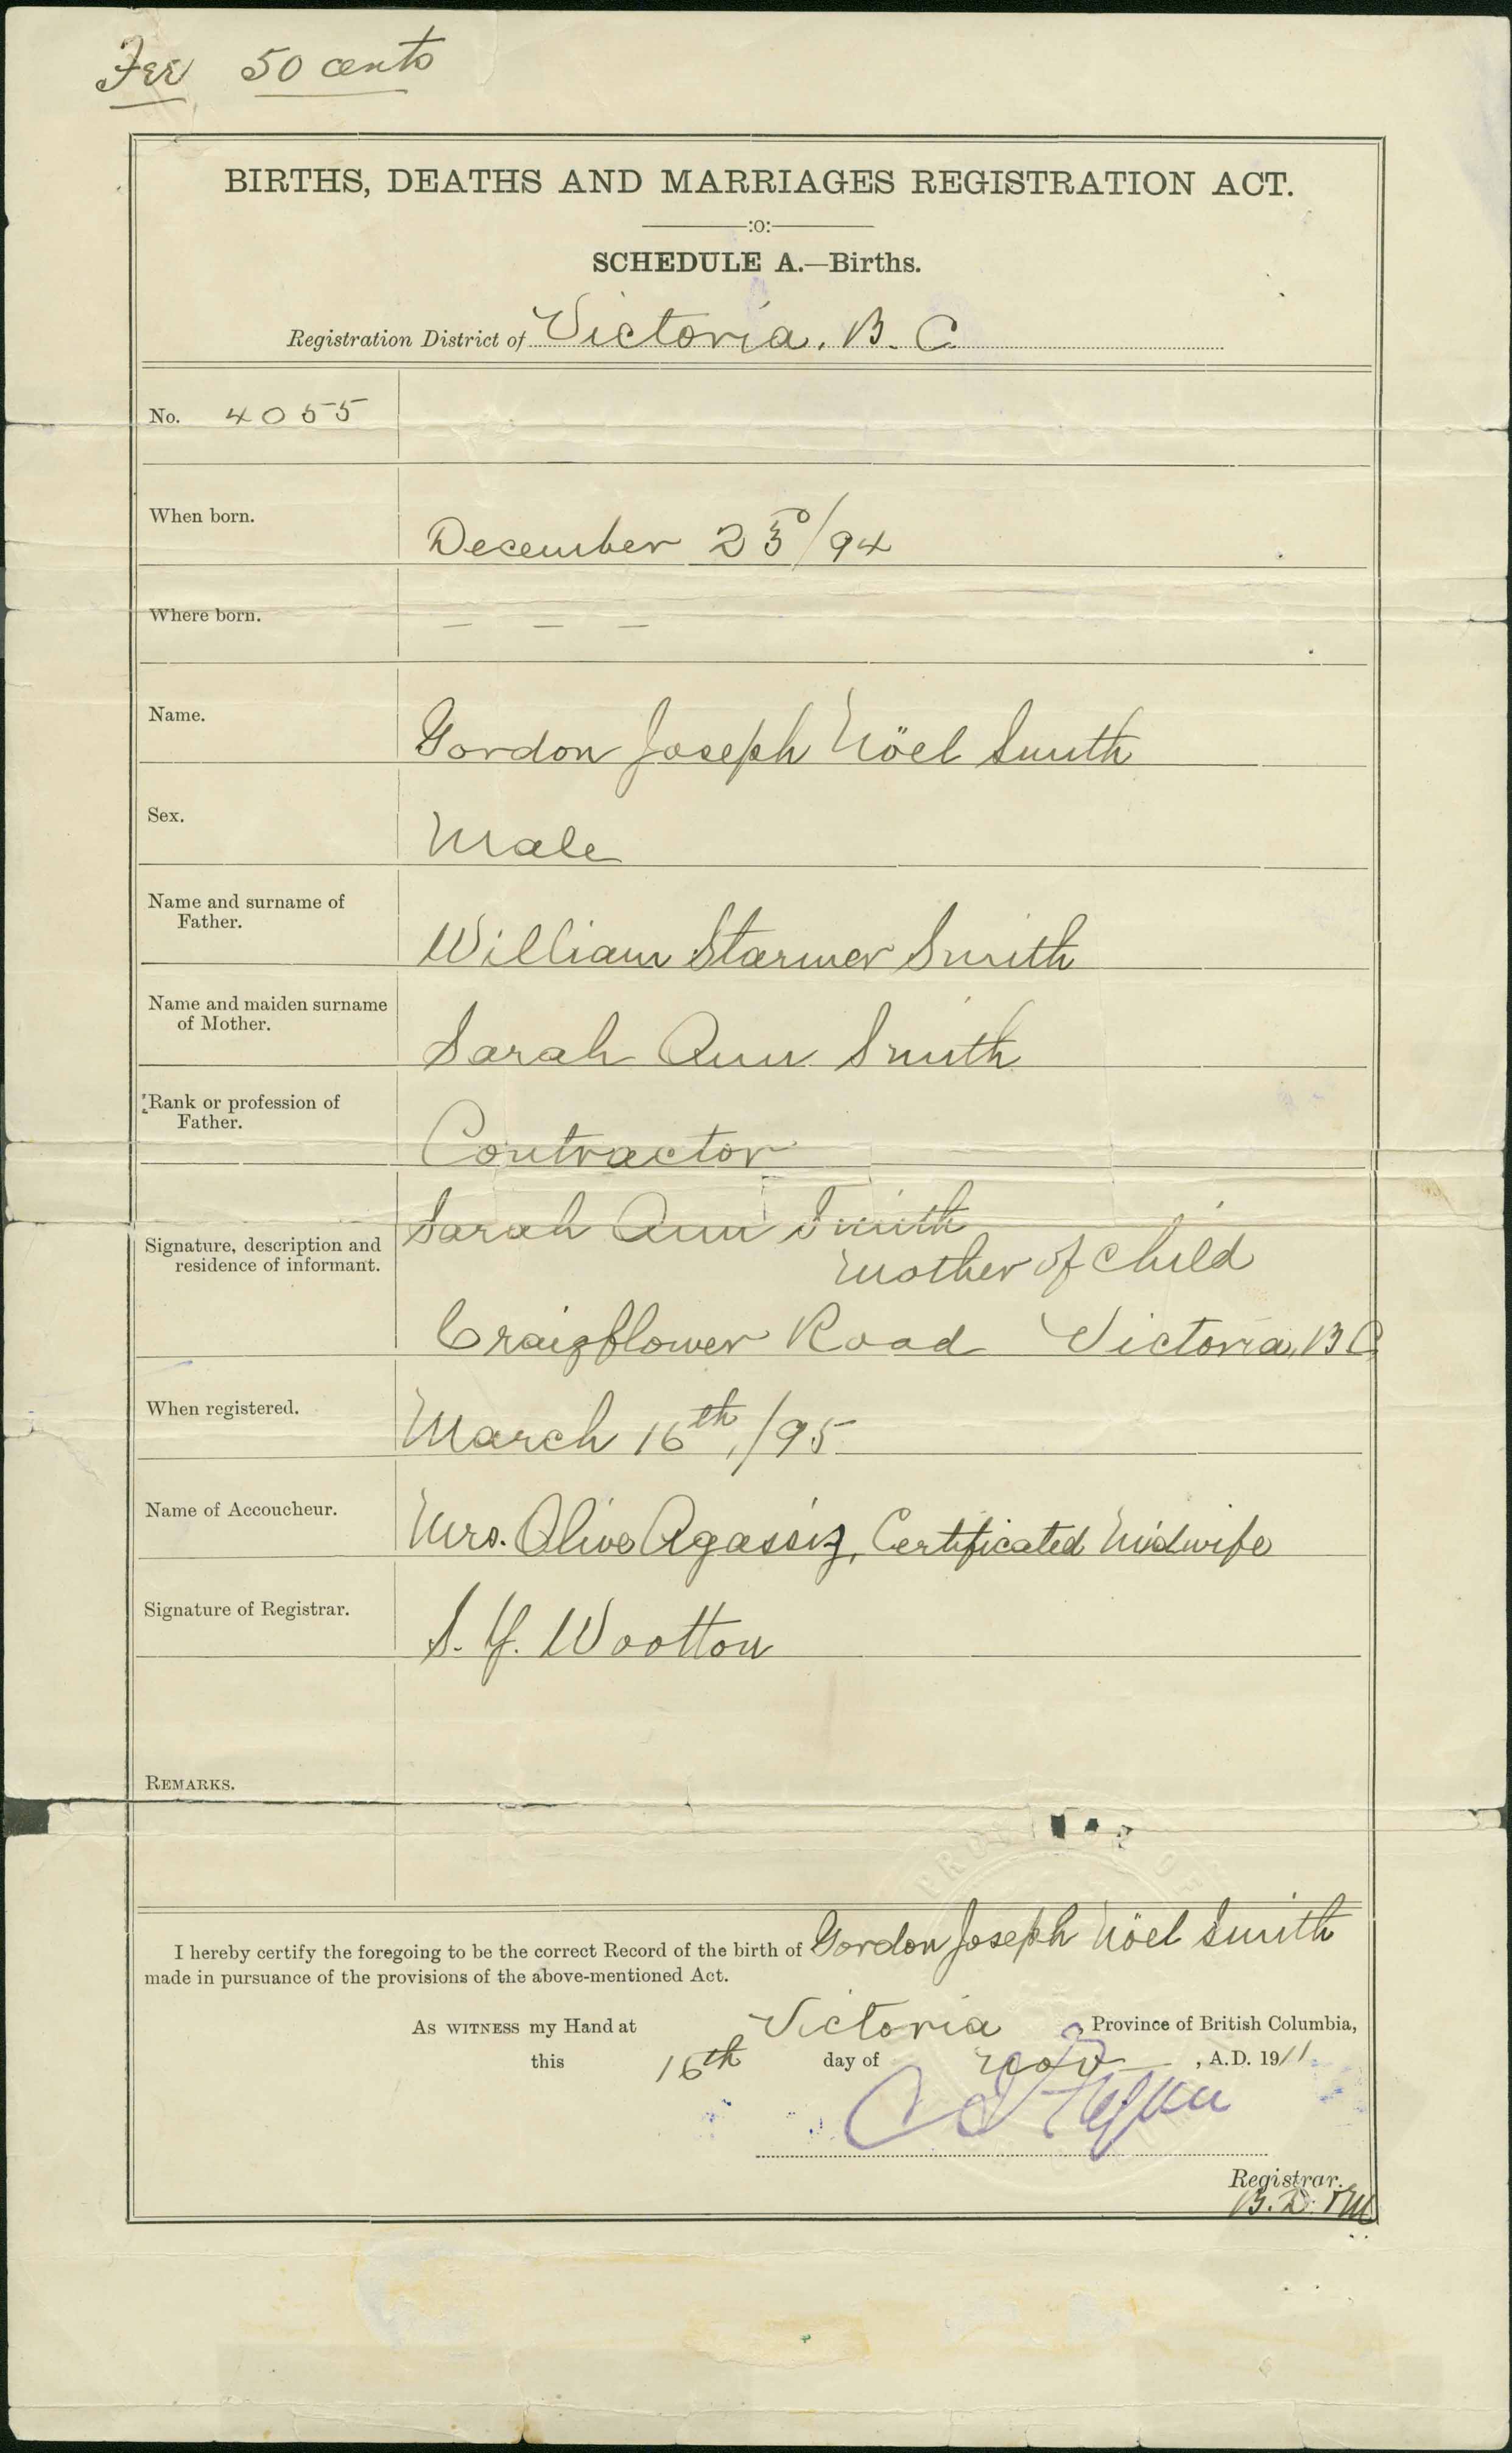 Fee 50 cents
BIRTHS, DEATHS AND MARRIAGES REGISTRATION ACT.
:o:
SCHEDULE A.—Births.
Registration District of Victoria, B. C.
No. 4055
When born.
December 23º/94
Where born.
— — —
Name.
Gordon Joseph Nöel Smith
Sex.
Male
Name and surname of
Father.
William Starmer Smith
Name and maiden surname
of Mother.
Sarah Ann Smith
Rank or profession of
Father.
Contractor
Sarah Ann Smith
Signature, description and
residence of informant.
mother of child
Craigflower Road Victoria, BC
When registered.
March 16th, /95
Name of Accoucheur.
Mrs. Olive Agassiz, Certificated Midwife
Signature of Registrar.
S. Y. Wootton
REMARKS.
I hereby certify the foregoing to be the correct Record of the birth of Gordon Joseph Nöel Smith
made in pursuance of the provisions of the above-mentioned Act.
AS WITNESS my Hand at Victoria, Province of British Columbia,
this 16th day of Nov, A.D. 1911.
Registrar.
B.D.&M